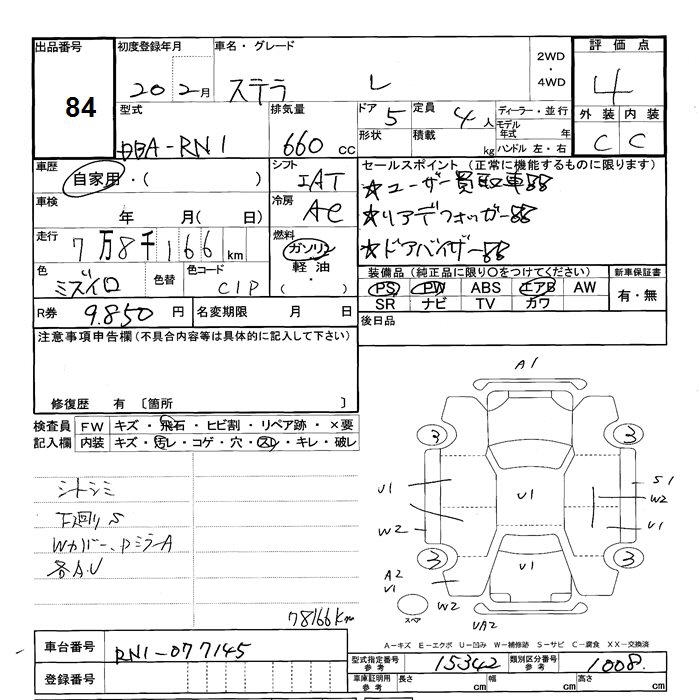 出品番号 初度登録年月 車名・グレード 2WD・4WD 評価点
84 20年2月 ステラ L 4
型式 排気量 ドア 5 定員 4人 ディーラー・並行 外装 内装
DBA-RN1 660cc 形状 積載 kg モデル年式 年 C C
ハンドル 左・右
車歴 自家用・( ) シフト IAT セールスポイント (正常に機能するものに限ります)
☆ユーザー買取車
車検 年 月( 日) 冷房 AC ☆リアデフォッガー
走行 7万8千166km 燃料 ガソリン 軽油 ・( ) ☆ドアバイザー
色 ミズイロ 色替 色コード C1P 装備品 (純正品に限り○をつけてください) 新車保証書
PS PW ABS エアB AW 有・無
SR ナビ TV カワ
R券 9.850円 名変期限 月 日 後日品
注意事項申告欄 (不具合内容等は具体的に記入して下さい)
修復歴 有 〔箇所 〕
検査員 FW キズ・飛石・ヒビ割・リペア跡・×要
記入欄 内装 キズ・汚レ・コゲ・穴・スレ・キレ・破レ
シトシミ
下廻りS
Wカバー、DミラーA
各A.U
78166Km
A1
3 3
U1 U1 S1
W2
W2 U1
3 U1 3
A2
U1
W2
スペア
UA2
A-キズ E-エクボ U-凹み W-補修跡 S-サビ C-腐食 XX-交換済
車台番号 RN1-077145 型式指定番号 参考 15342 類別区分番号 参考 1008
登録番号 車庫証明用 参考 長さ cm 幅 cm 高さ cm